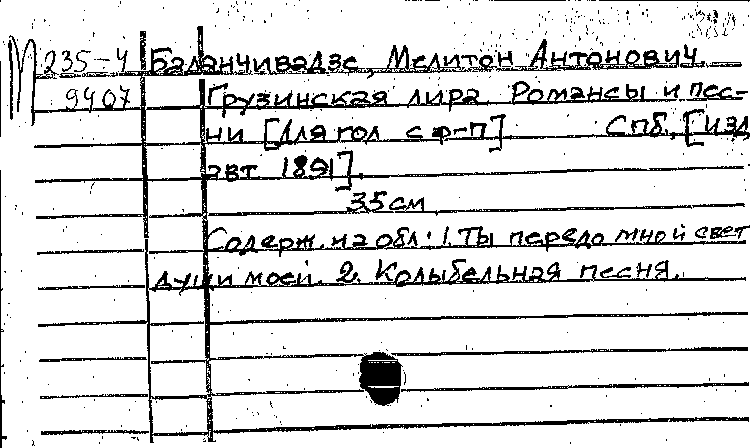 М 235-4 Баланчивадзе, Мелитон Антонович.
9407 Грузинская лира. Романсы и пес-
ни [Для гол с ф-п] Спб, [изд
авт 1891].
35см.
Содерж. на обл: 1. Ты передо мной свет
души моей. 2. Колыбельная песня.